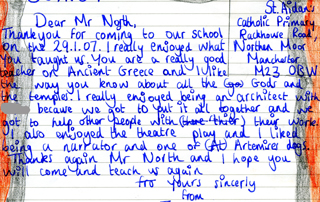 St. Aidans
Dear Mr North, Catholic Primary
Thankyou for coming to our school Rackhowe Road,
on the 29.1.07. I really enjoyed what Northen Moor
you taught us. You are a really good Manchester
teacher on Ancient Greece and I like M23 0BW
the way you know about all the Gods and
the temple. I really enjoyed being an architect with
becuase we got to put it all together and
got to help other people with (thier) their work.
I also enjoyed the theatre play and I liked
being a narrator and one of Artemires dogs.
Thanks again Mr North and I hope you
will come and teach us again
for yours sincerly
from